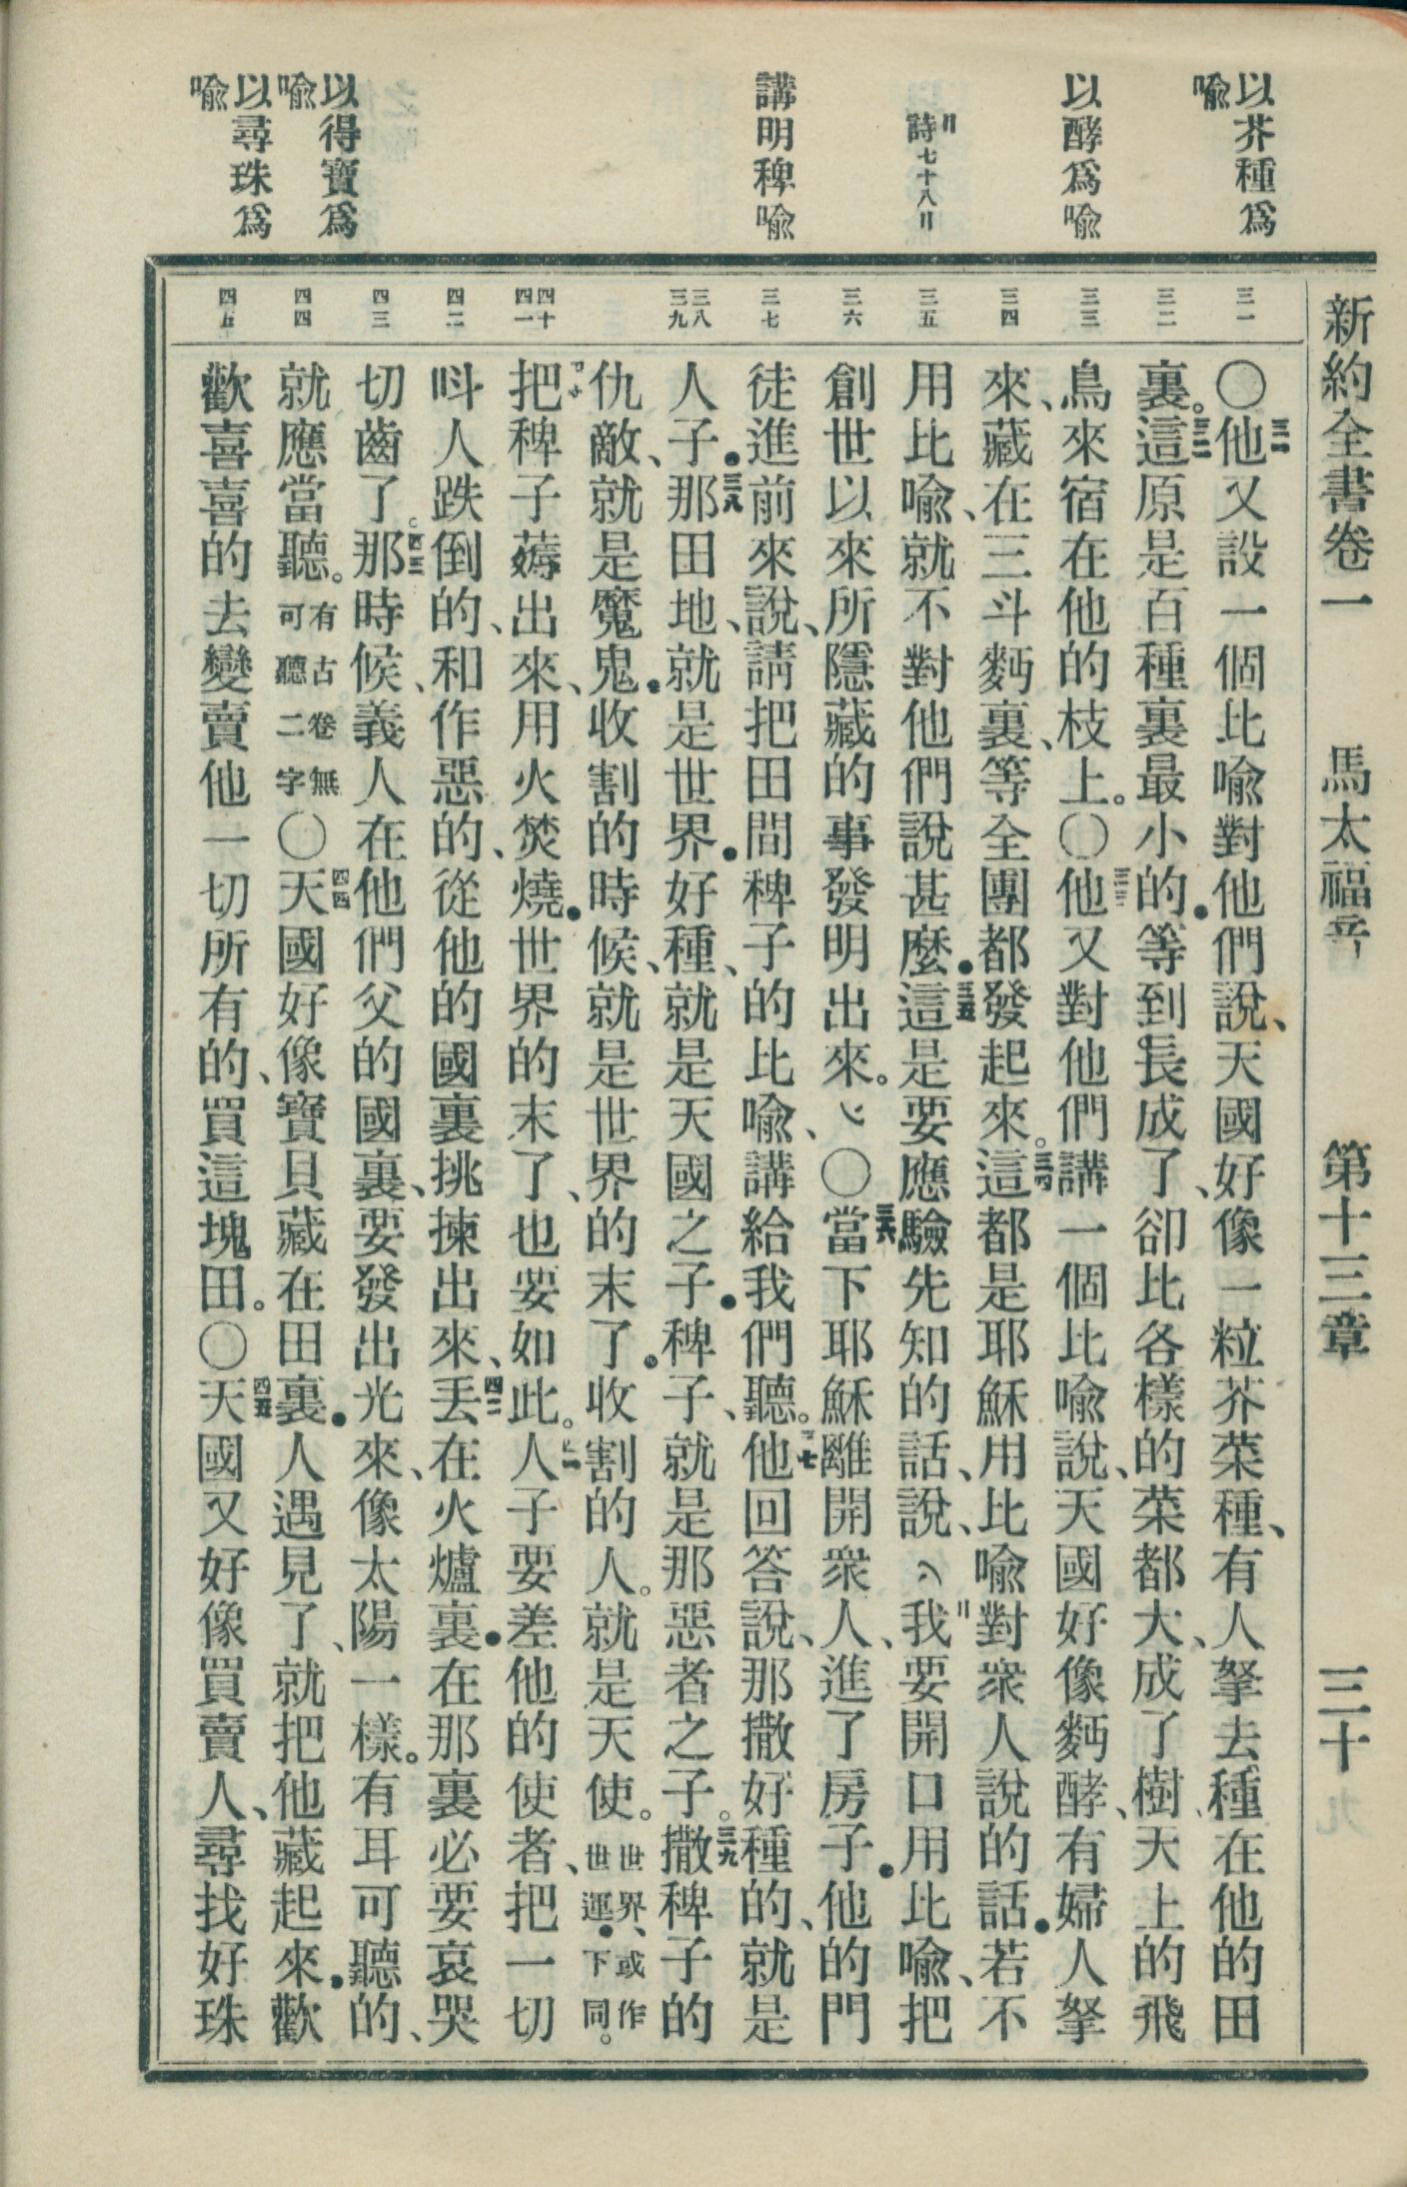 新約全書卷一　馬太福音　第十三章　三十
以芥種爲
喩
以酵爲喩
〢詩七十八〢
講明稗喩
以得寶爲
喩
以尋珠爲
喩
三一
三二
三三
三四
三五
三六
三七
三八
三九
四十
四一
四二
四三
四四
四五
〇三一他又設一個比喩對他們說、天國好像一粒芥菜種、有人拏去種在他的田
裏。三二這原是百種裏最小的．等到長成了、卻比各樣的菜都大、成了樹、天上的飛
鳥來宿在他的枝上。〇三三他又對他們講一個比喩說、天國好像麪酵、有婦人拏
來、藏在三斗麪裏、等全團都發起來。三四這都是耶穌用比喩對衆人說的話．若不
用比喩、就不對他們說甚麼．三五這是要應驗先知的話、說、〢我要開口用比喩、把
創世以來所隱藏的事發明出來。〇三六當下耶穌離開衆人、進了房子．他的門
徒進前來說、請把田間稗子的比喩、講給我們聽。三七他回答說、那撒好種的、就是
人子．三八那田地、就是世界．好種、就是天國之子．稗子、就是那惡者之子。三九撒稗子的
仇敵、就是魔鬼．收割的時候、就是世界的末了．收割的人。就是天使。世界、或作世運．下同。
把稗子薅出來、用火焚燒．世界的末了、也要如此。四一人子要差他的使者、把一切
呌人跌倒的、和作惡的、從他的國裏挑揀出來、四二丟在火爐裏．在那裏必要哀哭
切齒了。四三那時候、義人在他們父的國裏、要發出光來、像太陽一樣。有耳可聽的、
就應當聽。有古卷無可聽二字〇四四天國好像寶貝藏在田裏．人遇見了、就把他藏起來．歡
歡喜喜的去變賣他一切所有的、買這塊田。〇四五天國又好像買賣人、尋找好珠